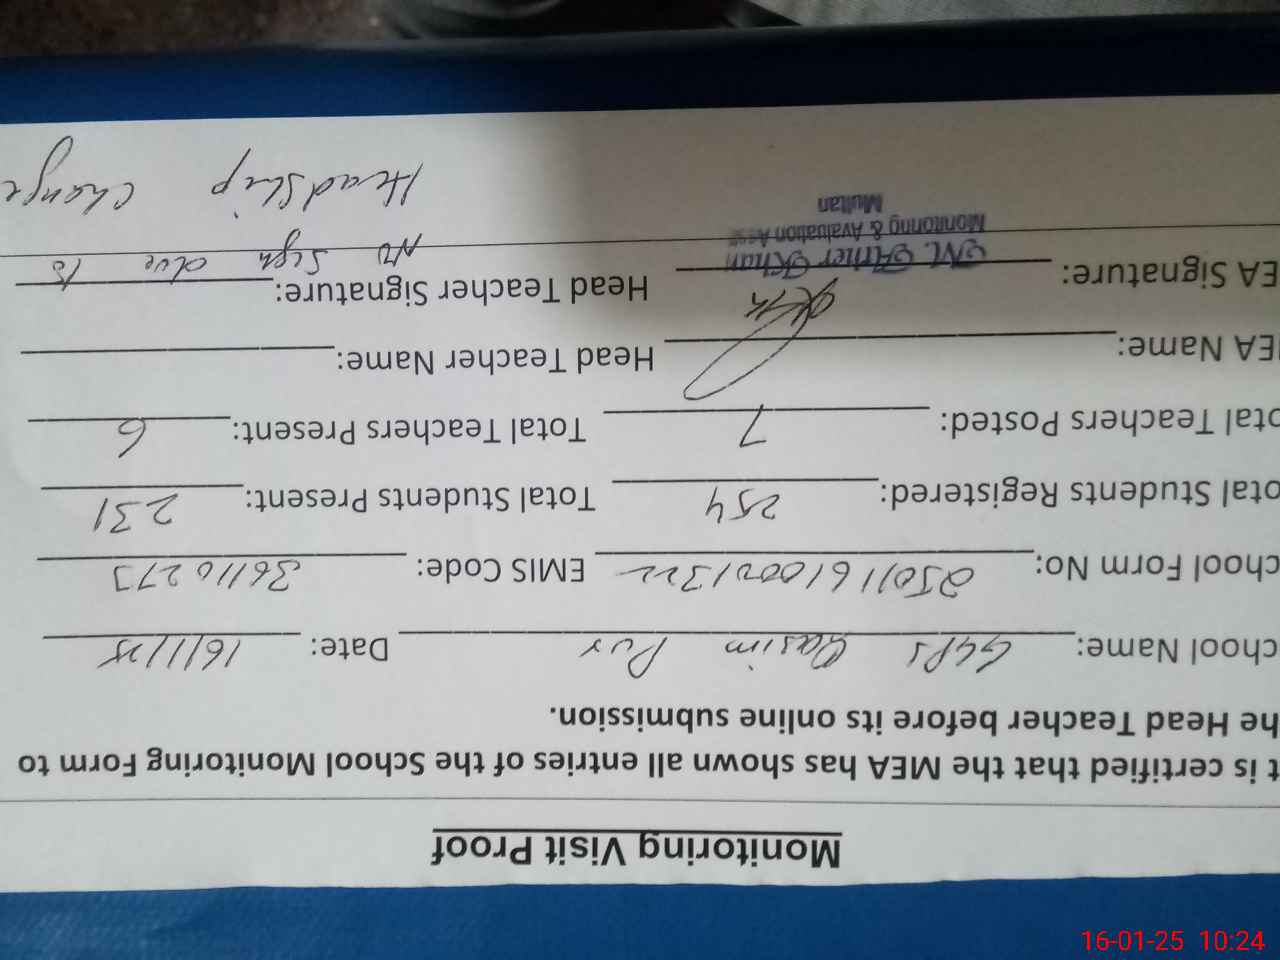 Monitoring Visit Proof
t is certified that the MEA has shown all entries of the School Monitoring Form to
he Head Teacher before its online submission.
chool Name: GGPS Qasim Pur Date: 16/1/25
chool Form No: EMIS Code: 36110273
otal Students Registered: 254 Total Students Present: 231
otal Teachers Posted: 7 Total Teachers Present: 6
EA Name: Head Teacher Name:
EA Signature: Head Teacher Signature: No Sign due to
M. Ather Khan
Monitoring & Avaluation Asst
Multan
Headship Change
16-01-25 10:24